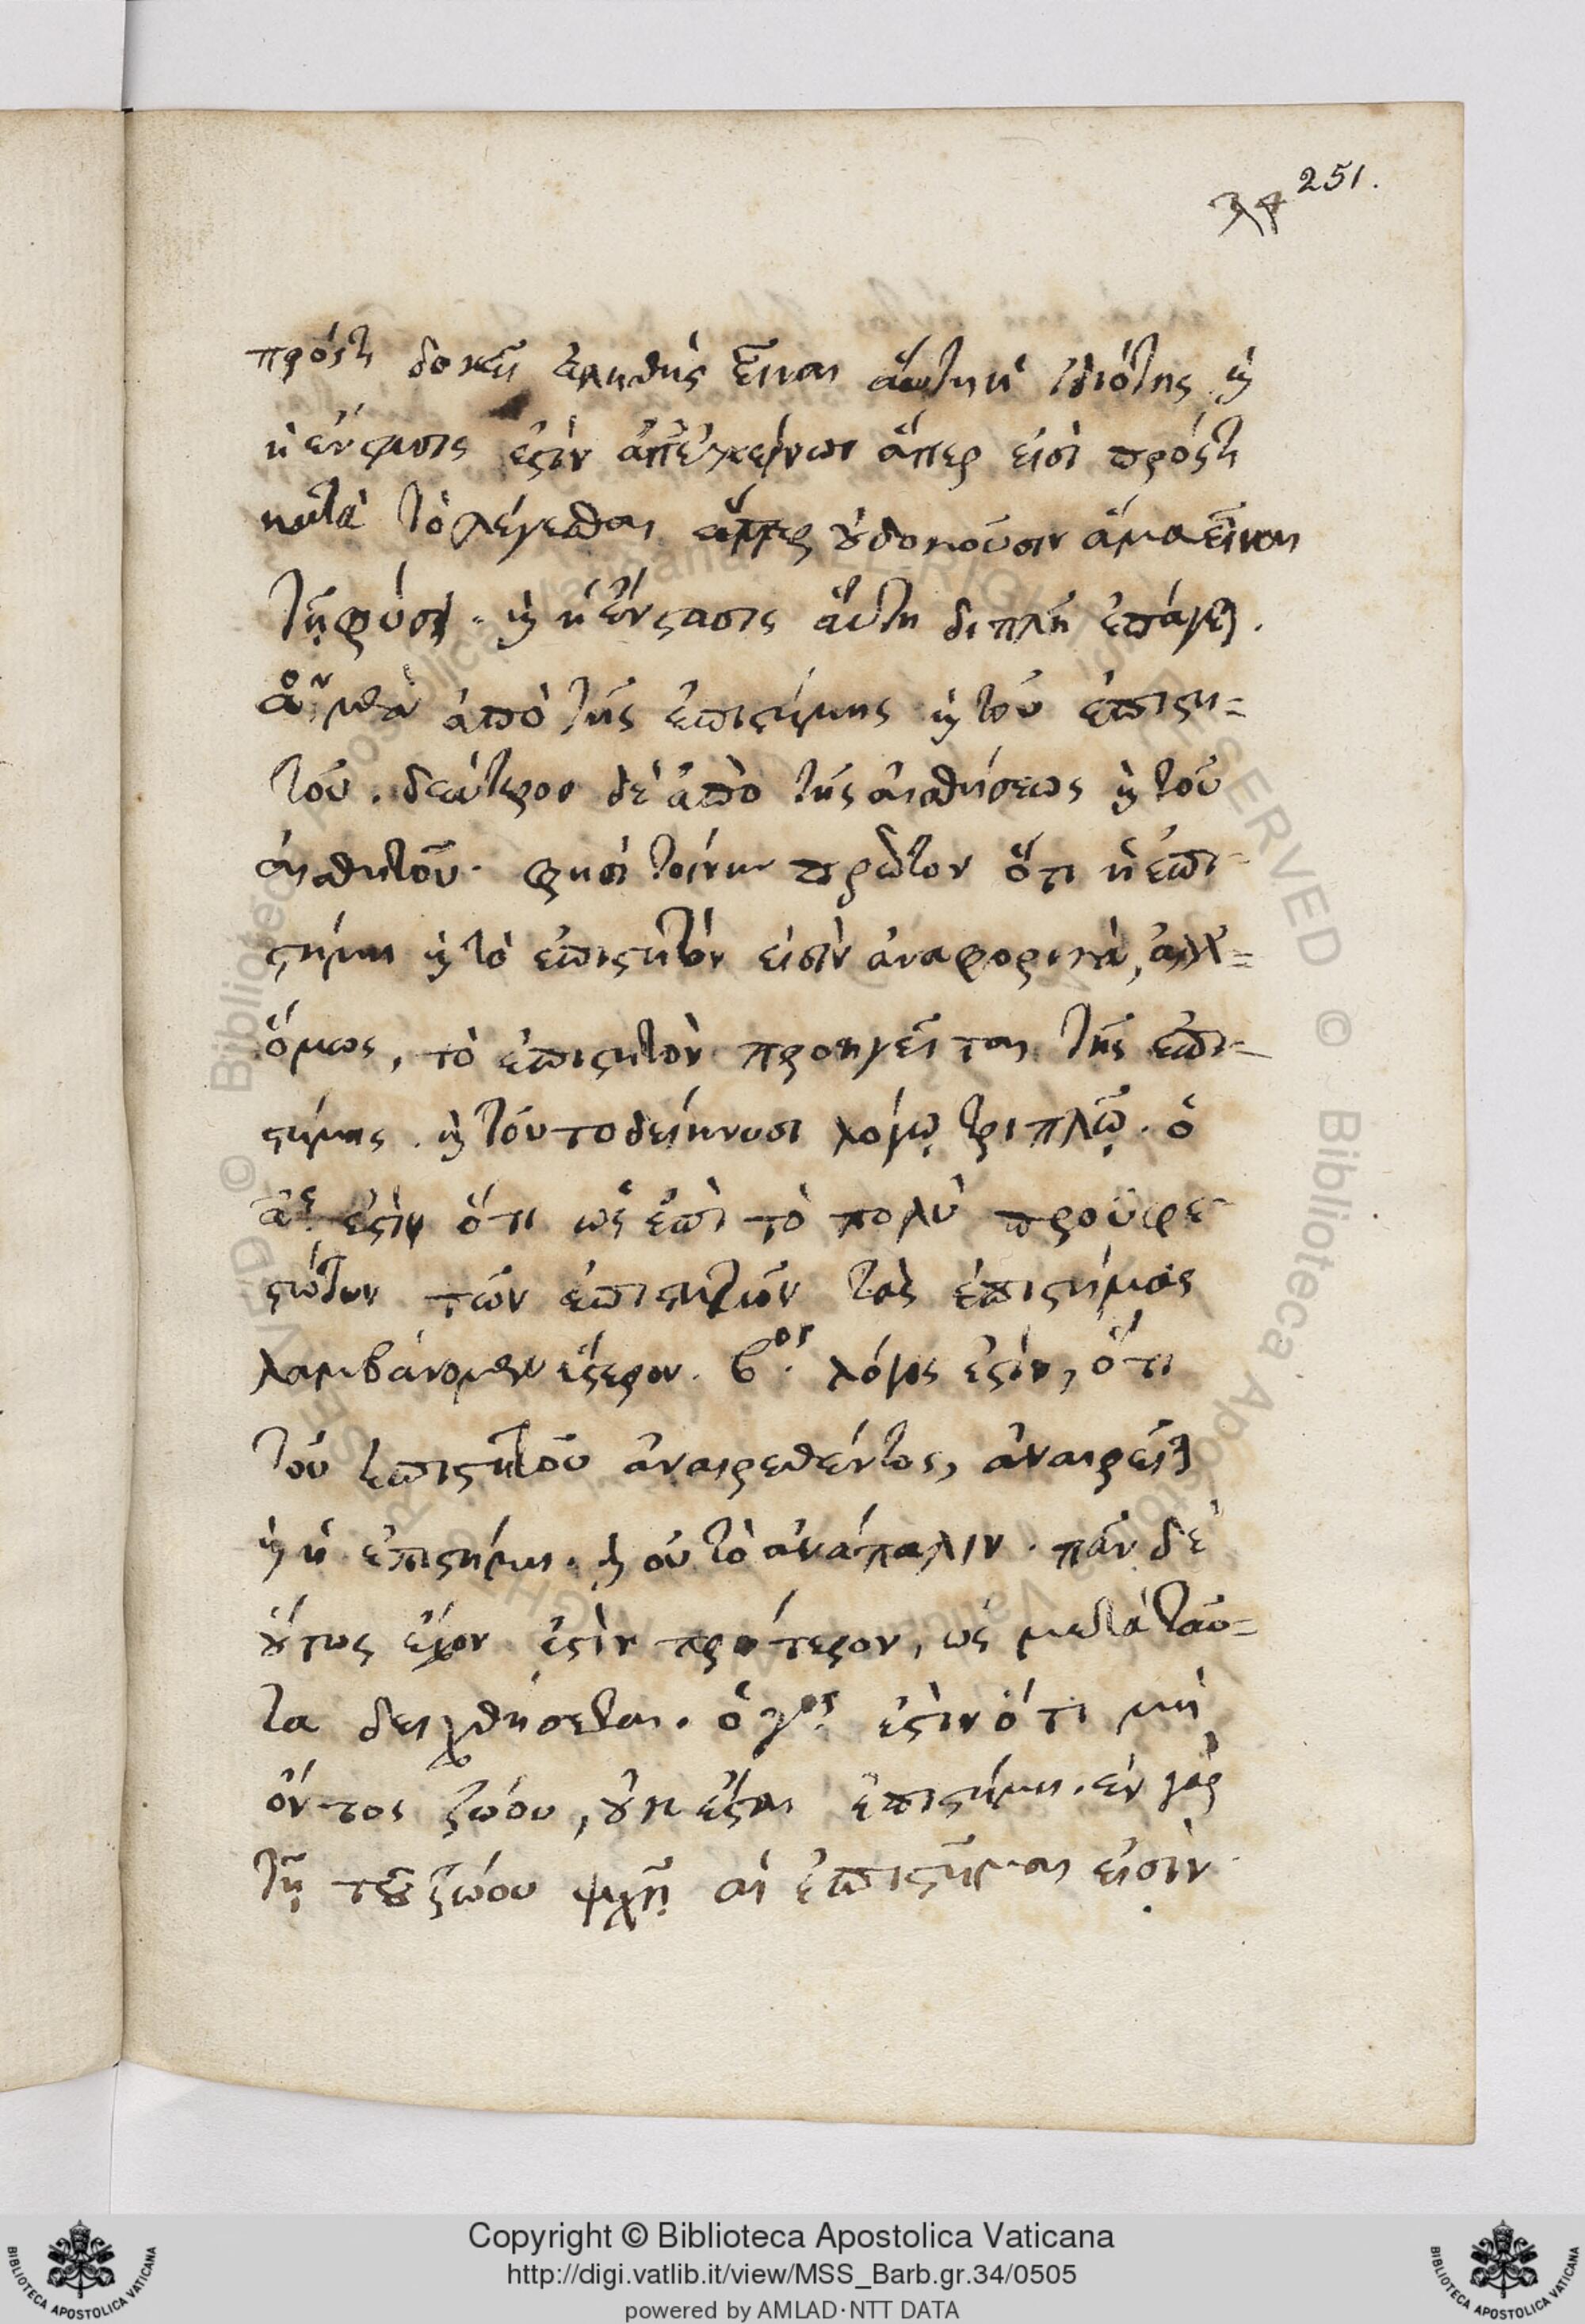 251.
πρός τι δοκεῖ ἀληθὴς εἶναι αὕτη ἡ ἰδιότης καὶ
ἡ ἔνστασις ἐστὶν ἀπ' ἐκείνων ἅπερ εἰσὶ πρός τι
κατὰ τὸ λέγεσθαι ἅπερ οὐ δοκοῦσιν ἅμα εἶναι
τῇ φύσει. καὶ ἡ ἔνστασις αὕτη διπλῆ ἐπάγεται.
αον μὲν ἀπὸ τῆς ἐπιστήμης καὶ τοῦ ἐπιστη=
τοῦ. δεύτερον δὲ ἀπὸ τῆς αἰσθήσεως καὶ τοῦ
αἰσθητοῦ. φησὶ τοίνυν πρῶτον ὅτι ἡ ἐπι-
στήμη καὶ τὸ ἐπιστητὸν εἰσὶν ἀναφορικὰ, ἀλλ'=
ὅμως, τὸ ἐπιστητὸν προηγεῖται τῆς ἐπι-
στήμης. καὶ τοῦτο δείκνυσι λόγῳ τριπλῷ. ὁ
αος ἐστὶν ὅτι ὡς ἐπὶ τὸ πολὺ προϋφε-
στώτων τῶν ἐπιστητῶν τὰς ἐπιστήμας
λαμβάνομεν ὕστερον. βος λόγος ἐστὶν, ὅτι
τοῦ ἐπιστητοῦ ἀναιρεθέντος, ἀναιρεῖται
καὶ ἡ ἐπιστήμη. καὶ οὐ τὸ ἀνάπαλιν. πᾶν δὲ
οὕτως ἔχον ἐστὶν πρότερον, ὡς μετὰ ταῦ=
τα δειχθήσεται. ὁ γος ἐστὶν ὅτι μὴ
ὄντος ζώου, οὐκ ἔσται ἐπιστήμη. ἐν γὰρ
τῇ τοῦ ζώου ψυχῇ αἱ ἐπιστῆμαι εἰσὶν.
Copyright © Biblioteca Apostolica Vaticana
http://digi.vatlib.it/view/MSS_Barb.gr.34/0505
powered by AMLAD·NTT DATA